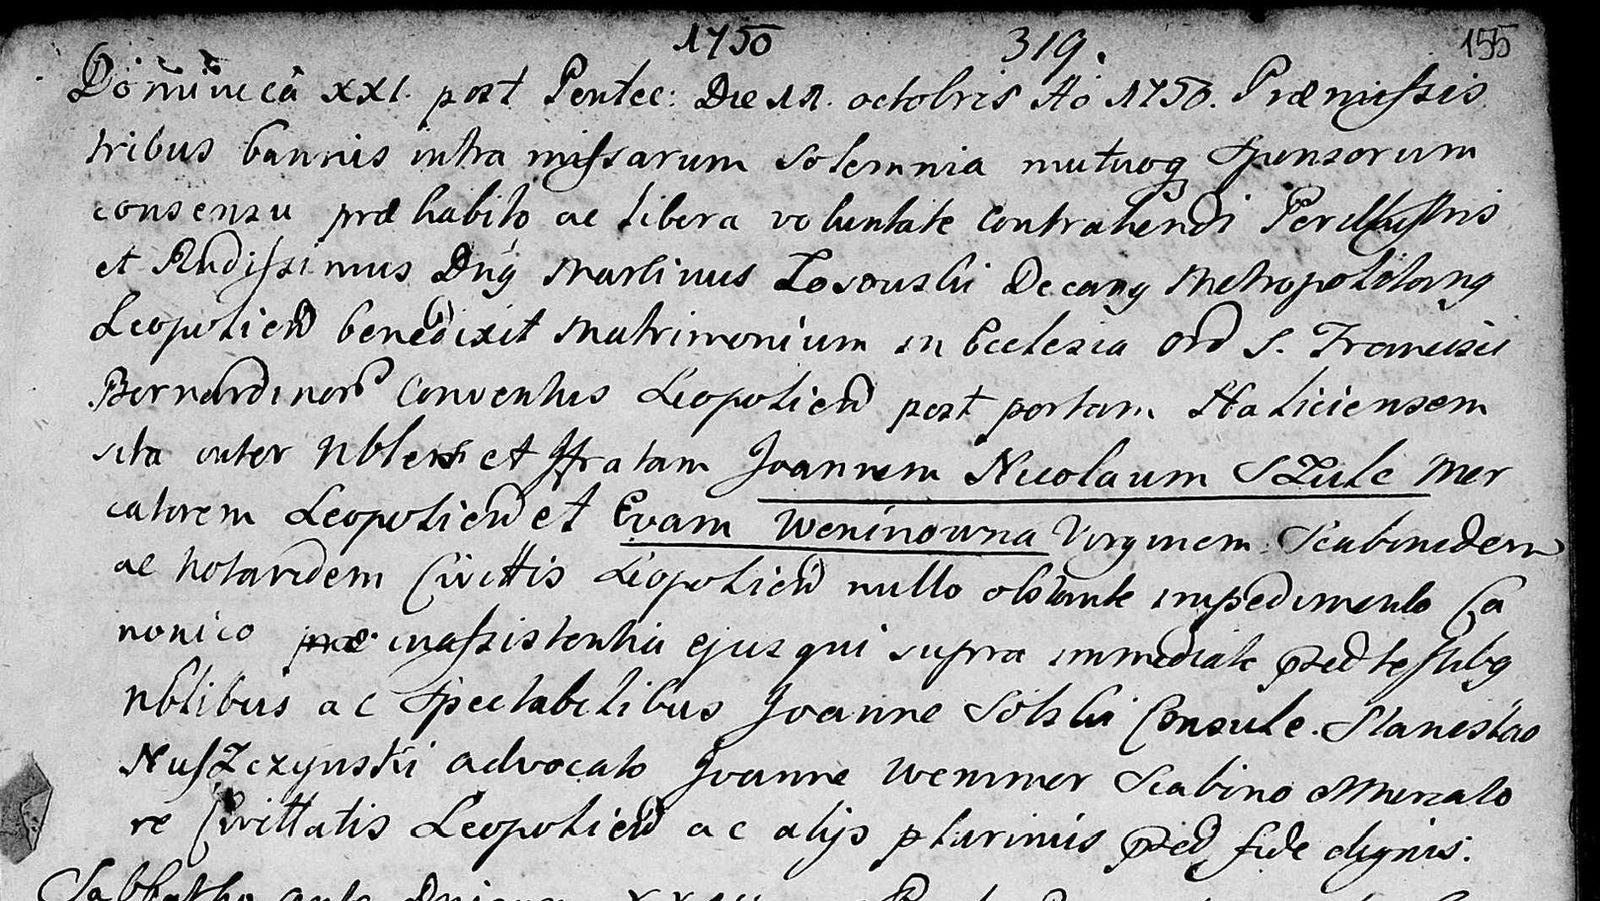 1750 319. 155
Dominica XXI. post Pentec: Die 11. octobris Aó 1750. Præmissis
tribus bannis intra missarum Solemnia mutuoq Sponsorum
consensu præhabito ac libera voluntate Contrahendi Perillustris
et Rndissimus Dnq Martinus Decanq Metropolitanq
Leopolien benedixit Matrimonium in Ecclesia Ord S. Francisci
Bernardinor Conventus Leopolien post portam Haliciensem
sita inter Nblem et Joannem Nicolaum SZulc Mer
catorem Leopolien et Evam Weninowna Virginem
ac Civittis Leopolien nullo obstante impedimento Ca
nonico inassistentia ejus qui supra immediate testibq
Nblibus ac Spectabilibus Joanne Solski Consule. Stanislao
NusZczynski advocato Joanne Wemmer Scabino Mercato
re Civittatis Leopolien ac alijs plurimis fide dignis.
Sabbatho ante